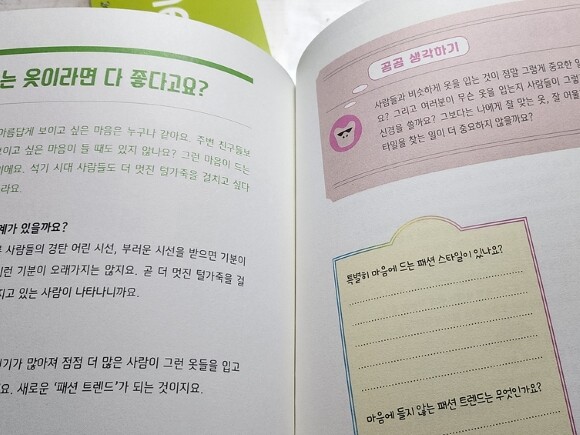 는 옷이라면 다 좋다고요?
아름답게 보이고 싶은 마음은 누구나 같아요. 주변 친구들보
보이고 싶은 마음이 들 때도 있지 않나요? 그런 마음이 드는
이에요. 석기 시대 사람들도 더 멋진 털가죽을 걸치고 싶다
라요.
예가 있을까요?
사람들의 경탄 어린 시선, 부러운 시선을 받으면 기분이
이런 기분이 오래가지는 않지요. 곧 더 멋진 털가죽을 걸
치고 있는 사람이 나타나니까요.
인기가 많아져 점점 더 많은 사람이 그런 옷들을 입고
요. 새로운 '패션 트렌드'가 되는 것이지요.
곰곰 생각하기
사람들과 비슷하게 옷을 입는 것이 정말 그렇게 중요한 일
요? 그리고 여러분이 무슨 옷을 입는지 사람들이 그렇
신경을 쓸까요? 그보다는 나에게 잘 맞는 옷, 잘 어울
타일을 찾는 일이 더 중요하지 않을까요?
특별히 마음에 드는 패션 스타일이 있나요?
마음에 들지 않는 패션 트렌드는 무엇인가요?